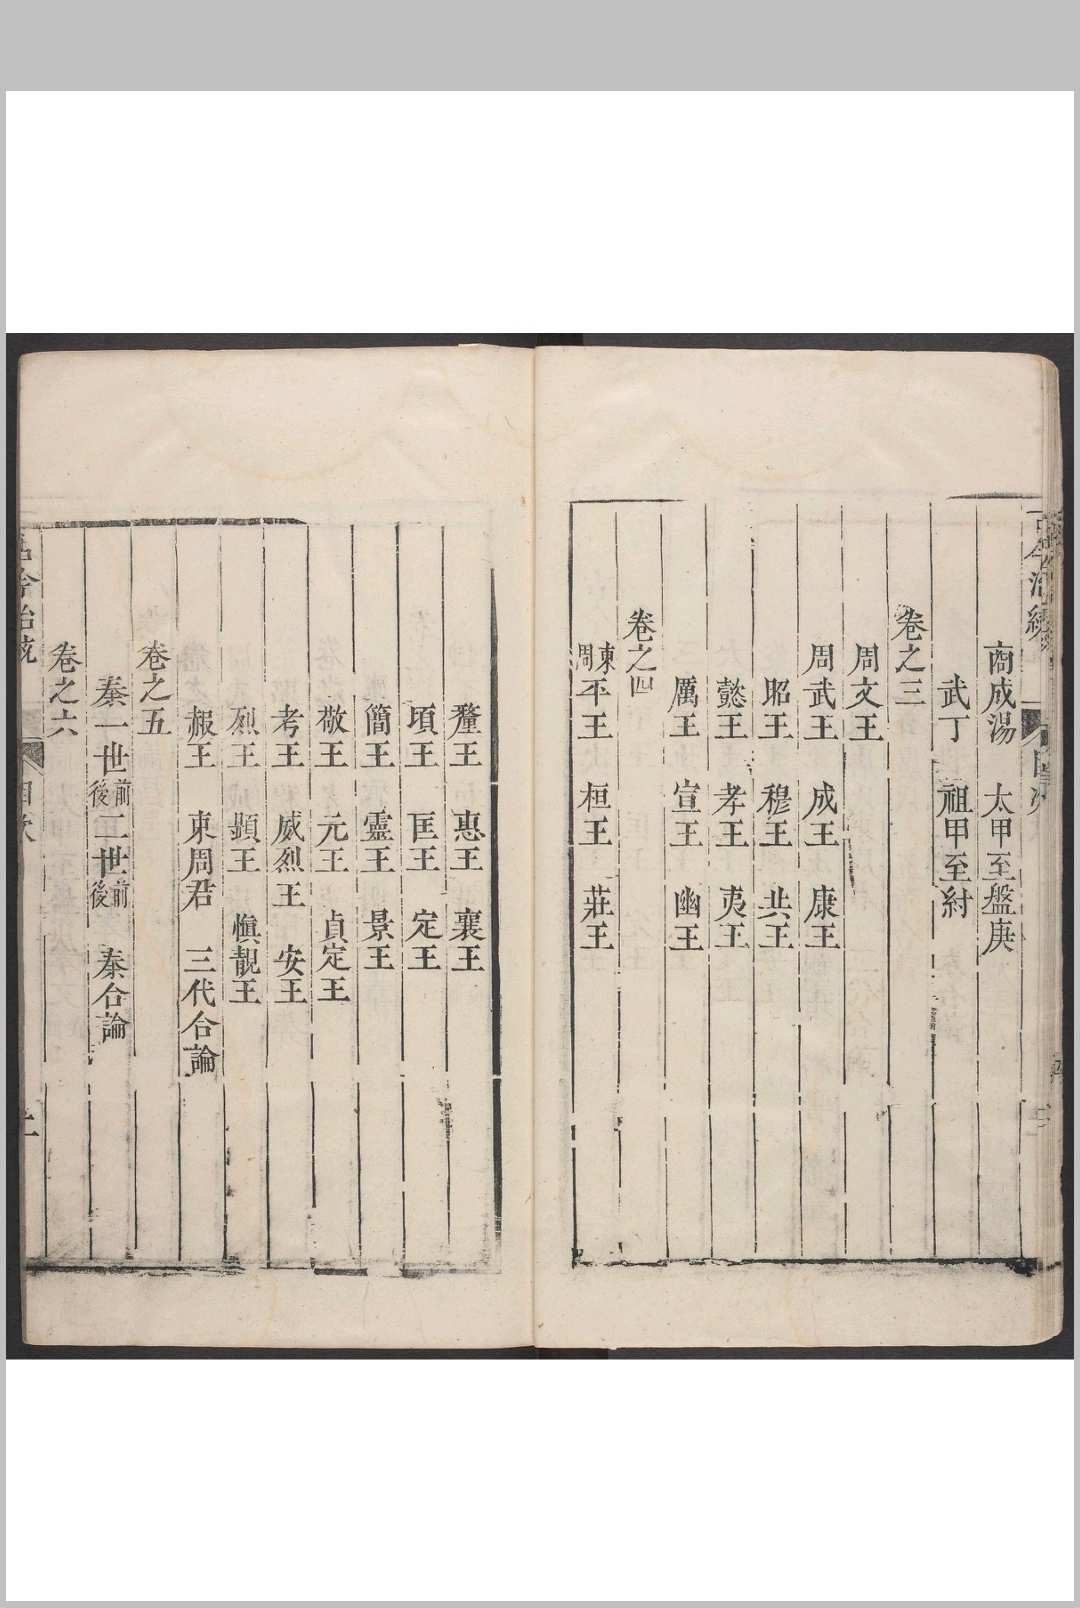 古今治統
目次
商成湯　太甲至盤庚
武丁　祖甲至紂
卷之三
周文王
周武王　成王　康王
昭王　穆王　共王
懿王　孝王　夷王
厲王　宣王　幽王
卷之四
東周平王　桓王　莊王
釐王　惠王　襄王
頃王　匡王　定王
簡王　靈王　景王
敬王　元王　貞定王
考王　威烈王　安王
烈王　顯王　愼靚王
赧王　東周君　三代合論
卷之五
秦一世前後二世前後　秦合論
卷之六
古今治統
目次